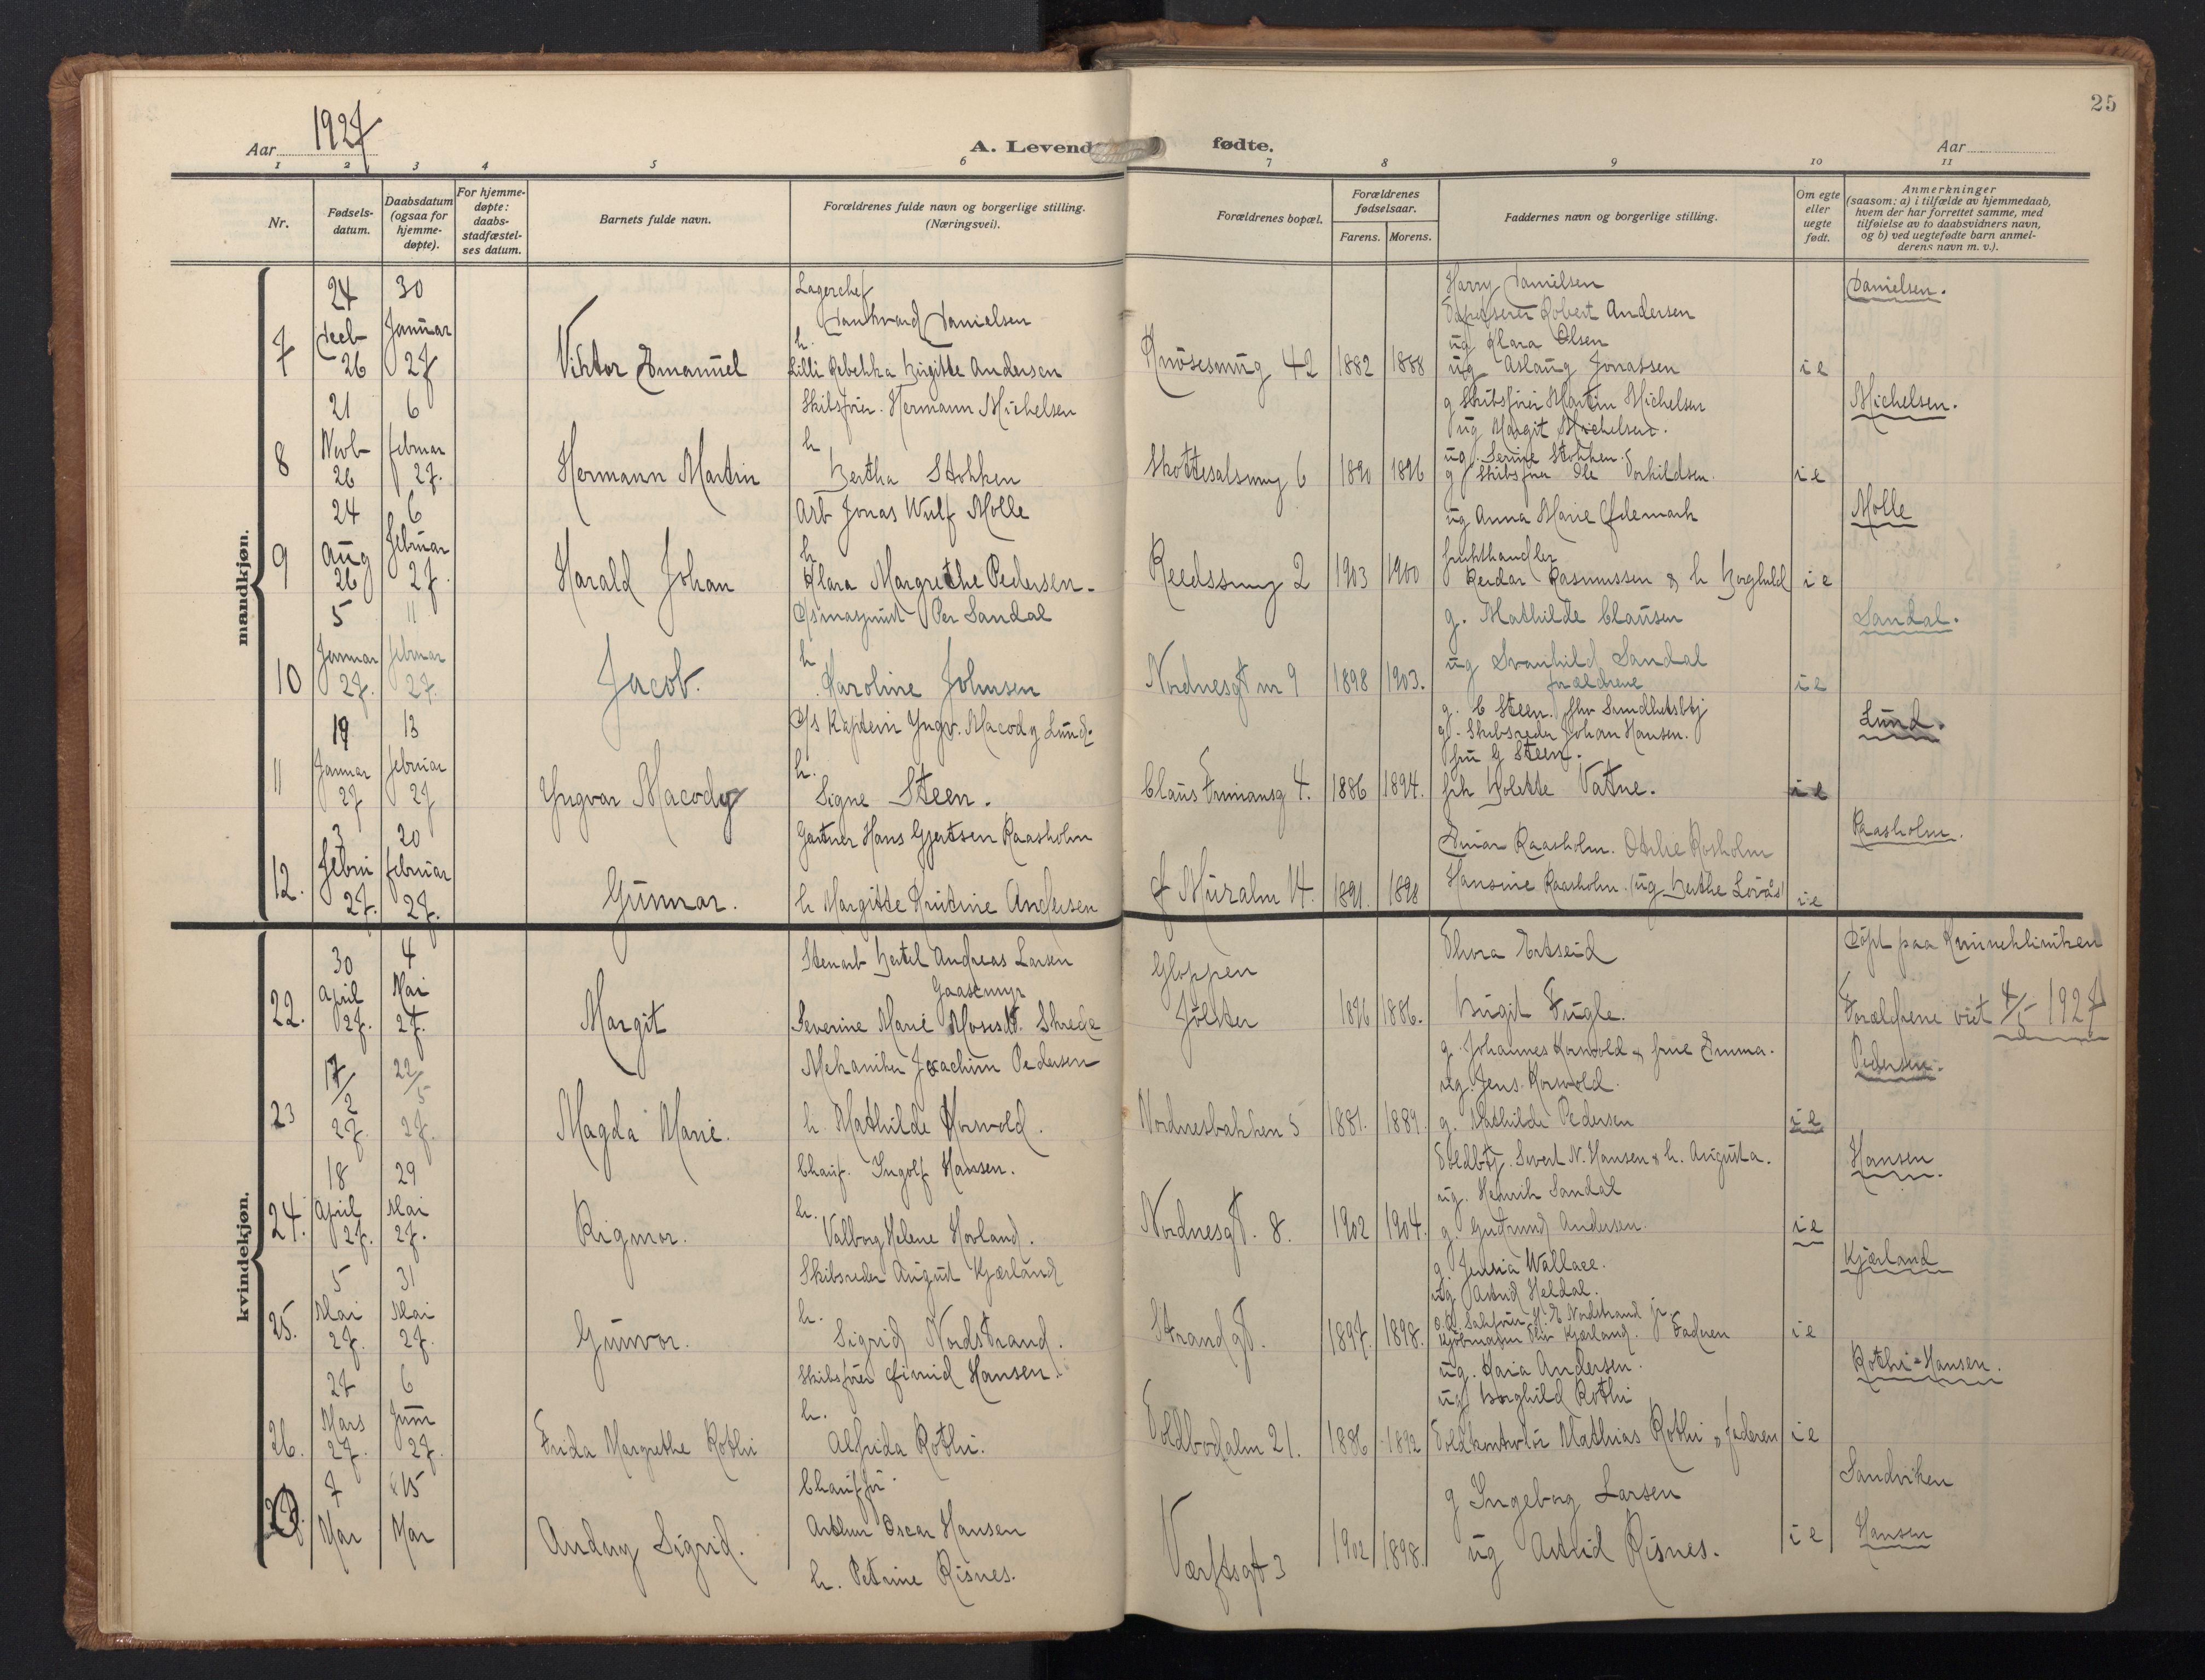 25
Aar 1927
A. Levende fødte.
Aar
1 2 3 4 5 6 7 8 9 10 11
Nr.
Fødsels-
datum.
Daabsdatum
(ogsaa for
hjemme-
døpte).
For hjemme-
døpte:
daabs-
stadfæstel-
ses datum.
Barnets fulde navn.
Forældrenes fulde navn og borgerlige stilling.
(Næringsvei).
Forældrenes bopæl.
Forældrenes
fødselsaar.
Farens. Morens.
Faddernes navn og borgerlige stilling.
Om egte
eller
uegte
født.
Anmerkninger
(saasom: a) i tilfælde av hjemmedaab,
hvem der har forrettet samme, med
tilføielse av to daabsvidners navn,
og b) ved uegtefødte barn anmel-
derens navn m. v.).
mandkjøn.
7
24
Decb
26
30
Januar
27
Viktor Emanuel
Lagerchef
Dankvard Danielsen
h.
Lilli Rebekka Birgitte Andersen
Knøsesmug 42
1882 1888
Harry Danielsen
Tapetserer Robert Andersen
ug Klara Olsen
ug Aslaug Jonassen
i e
Danielsen.
8
21
Novb
26
6
februar
27.
Hermann Martin
Skibsfører. Hermann Michelsen
h
Bertha Stokken
Skottesalsmug 6
1890 1896
g Skibsfører Martin Michelsen
ug Margit Michelsen.
ug. Serine Stokken.
g Skibsfører Ole Torkildsen.
i e
Michelsen.
9
24
Aug
26
6
februar
27.
Harald Johan
Arb Jonas Wulf Molle
h
Klara Margrethe Pedersen.
Reedssmug 2
1903 1900
ug Anna Marie Ødemark
frukthandler
Reidar Rasmussen & h Borghild
i e
Molle
10
5
Januar
27.
11
februar
27.
Jacob.
D/s maskinist Per Sandal
h
Karoline Johnsen
Nordnesgt nr 9
1898 1903.
g. Mathilde Clausen
ug Svanhild Sandal
forældrene
i e
Sandal.
11
19
Januar
27
13
februar
27
Yngvar Macody
D/s Kaptein Yngv. Macody Lund.
h.
Signe Steen.
Claus Frimansg 4.
1886 1894.
g. C Steen.
g. Skibsreder Johan Hansen.
fru G Steen.
frk Bolette Vatne.
i e
Lund.
12.
3
Febru
27.
20
februar
27.
Gunnar.
Gartner Hans Gjertsen Raasholm
h Margitte Kristine Andersen
1891. 1898
Einar Raasholm.
Hansine Raasholm.
i e
Raasholm.
kvindekjøn.
22.
30
April
27.
4
Mai
27.
Margit
Stenarb Bertel Andreas Larsen
Gaasemyr
Severine Marie Mosesdt. Skrede
Gloppen
Jølster
1896 1886.
Birgit Fugle.
Døpt paa Kvinekliniken
Forældrene viet 4/5 1927
23
17/2
27.
22/5
27.
Magda Marie.
Mekaniker Joachim Pedersen
h. Mathilde Korsvold.
Nordnesbakken 5
1881. 1889.
g. Johannes Korsvold & frue Emma.
ug. Jens. Korsvold.
g. Mathilde Pedersen
i e
Pedersen.
24.
18
April
27.
29
Mai
27.
Rigmor.
Chauf. Ingolf Hansen.
h.
Valborg Helene Hovland.
Nordnesgt. 8.
1902 1904.
Toldbtj. Sivert N. Hansen & h. Augusta.
ug. Henrik Sandal
g. Gudrund Andersen.
i e
Hansen.
25.
5
Mai
27.
31
Mai
27.
Gunvor.
Skibsreder August Kjærland
h.
Sigrid Nordstrand.
Strandgt.
1897. 1898.
g. Jensia Wallace.
ug Astrid Heldal.
Kjøbmann Kjærland. Faderen
i e
Kjærland
26.
27
Mars
27.
6
Juni
27.
Frida Margrethe Rothi
Skibsfører Eivind Hansen.
h.
Alfrida Rothi.
Toldbodalm 21.
1886 1892
ug. Karia Andersen.
ug Borghild Rothi
Toldkontrolør Mathias Rothi & faderen
i e
Rothi-Hansen.
27.
7
Mar
15
Mar
Andny Sigrid.
Chauffør
Arthur Oscar Hansen
h. Petrine Risnes.
Værftsgt 3
1902 1898.
g Ingeborg Larsen
ug Astrid Risnes.
i e
Sandviken
Hansen